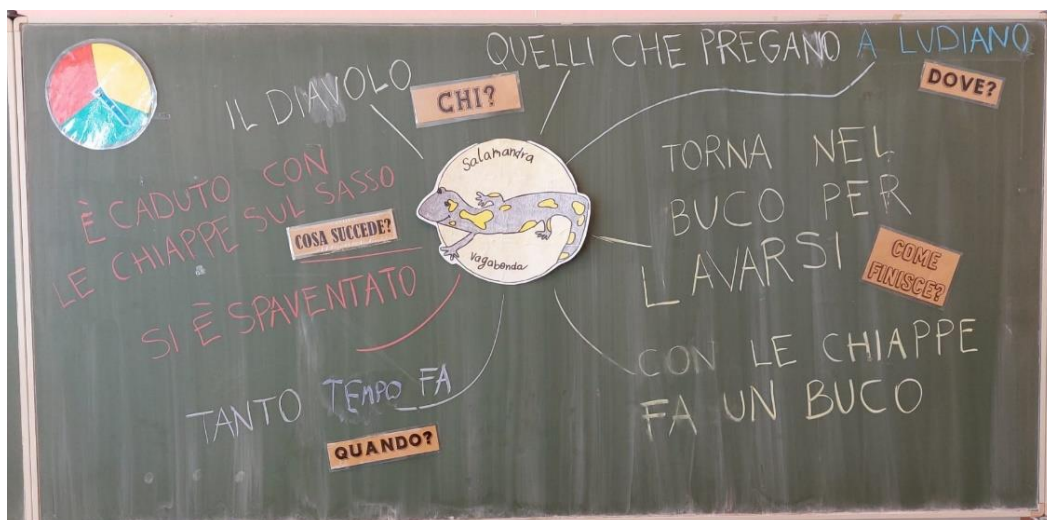 QUELLI CHE PREGANO A LUDIANO
DOVE?
IL DIAVOLO
CHI?
Salamandra
Vagabonda
È CADUTO CON
LE CHIAPPE SUL SASSO
COSA SUCCEDE?
SI È SPAVENTATO
TANTO TEMPO FA
QUANDO?
TORNA NEL
BUCO PER
LAVARSI
COME
FINISCE?
CON LE CHIAPPE
FA UN BUCO